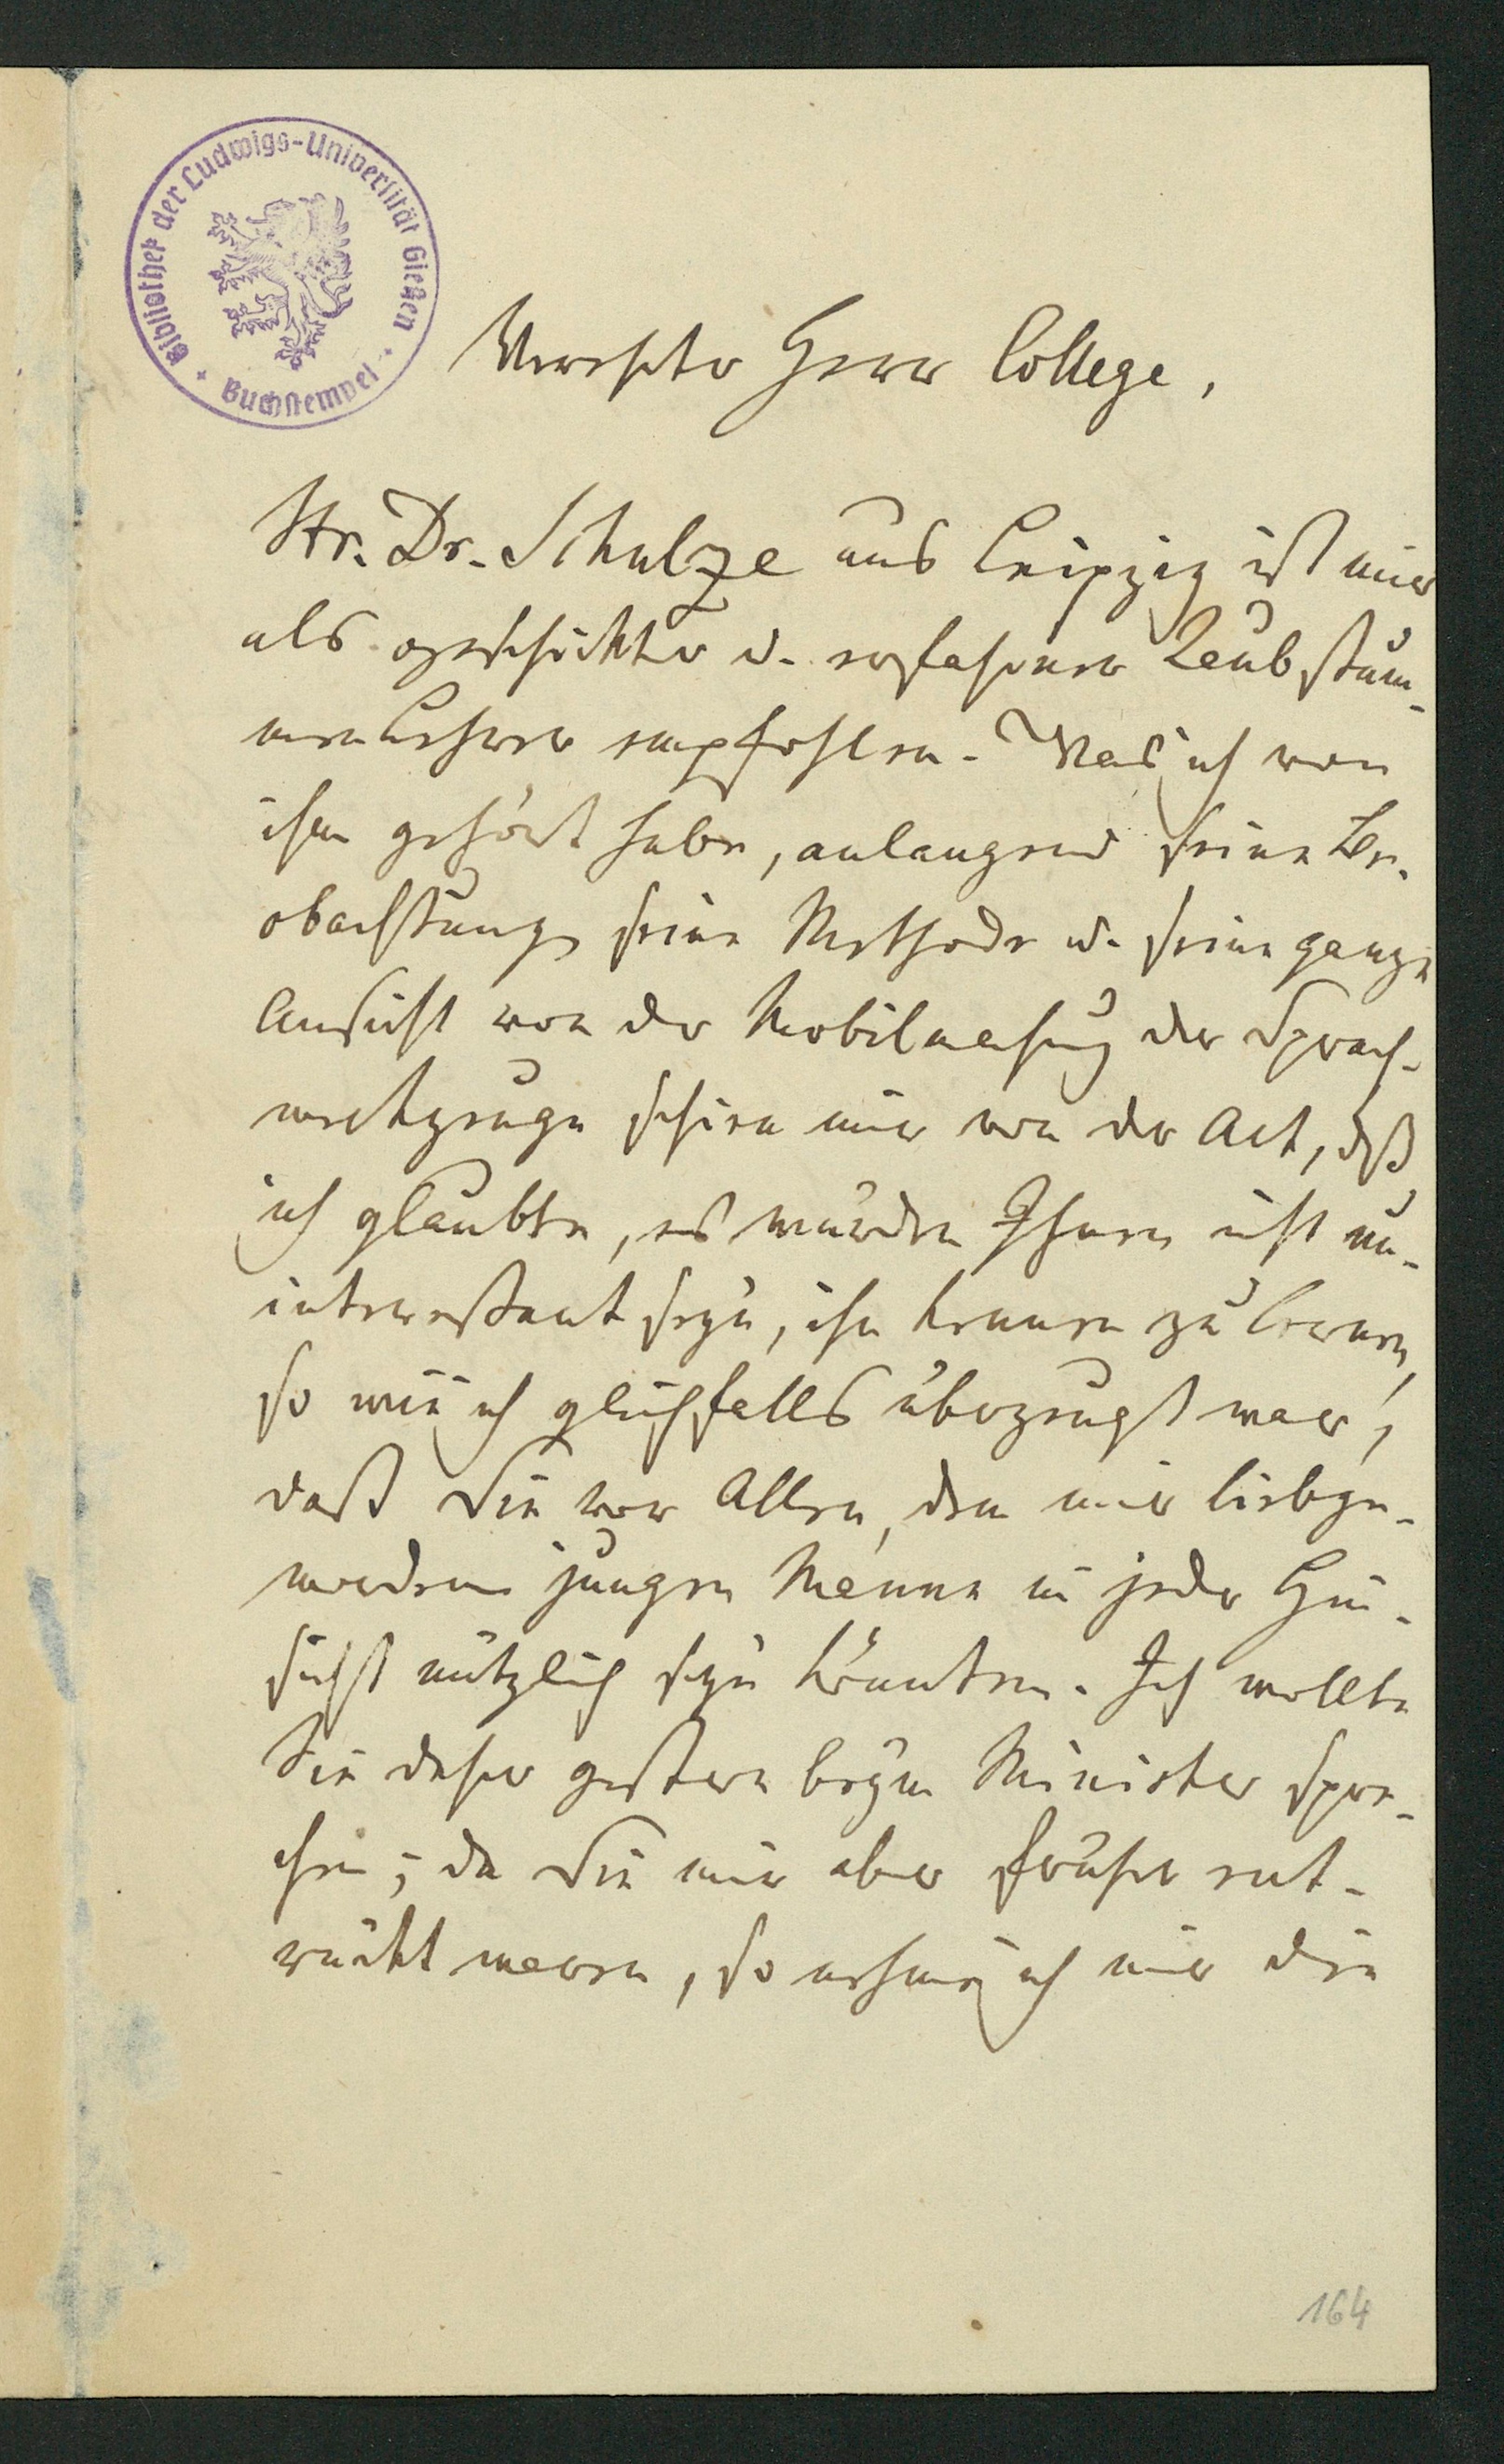 Bibliothek der Ludwigs-Universität Gießen
Buchstempel
Verehrter Herr College,
Hr. Dr. Schulze aus Leipzig ist mir
als geschickter u. erfahrener Taubstum-
menlehrer empfohlen. Was ich von
ihm gehört habe, anlangend seine Be-
obachtungs seine Methode u. seine ganze
Ansicht von der Mobilmachung der Sprach-
werkzeuge schien mir von der Art, daß
ich glaubte, es würde Ihnen nicht un-
interessant seyn, ihn kennen zu lernen,
so wie ich gleichfalls überzeugt war,
daß Sie vor Allen, dem mir liebge-
wordenen jungen Manne in jeder Hin-
sicht nützlich seyn könnten. Ich wollte
Sie daher gestern beym Minister spre-
chen; da Sie mir aber früher ent-
rückt waren, so nehme ich mir die
164